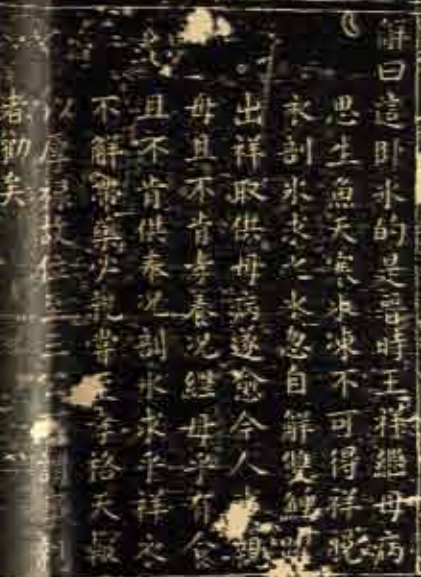 解曰這卧冰的是晉時王祥繼母病
思生魚天寒冰凍不可得祥脫
衣剖冰求之冰忽自解雙鯉躍
出祥取供母病遂愈今人親
母且不肯孝養況繼母乎有食
且不肯供奉況剖冰求乎祥衣
不解帶藥必親嘗至孝格天報
以厚祿故位至三
者勸矣